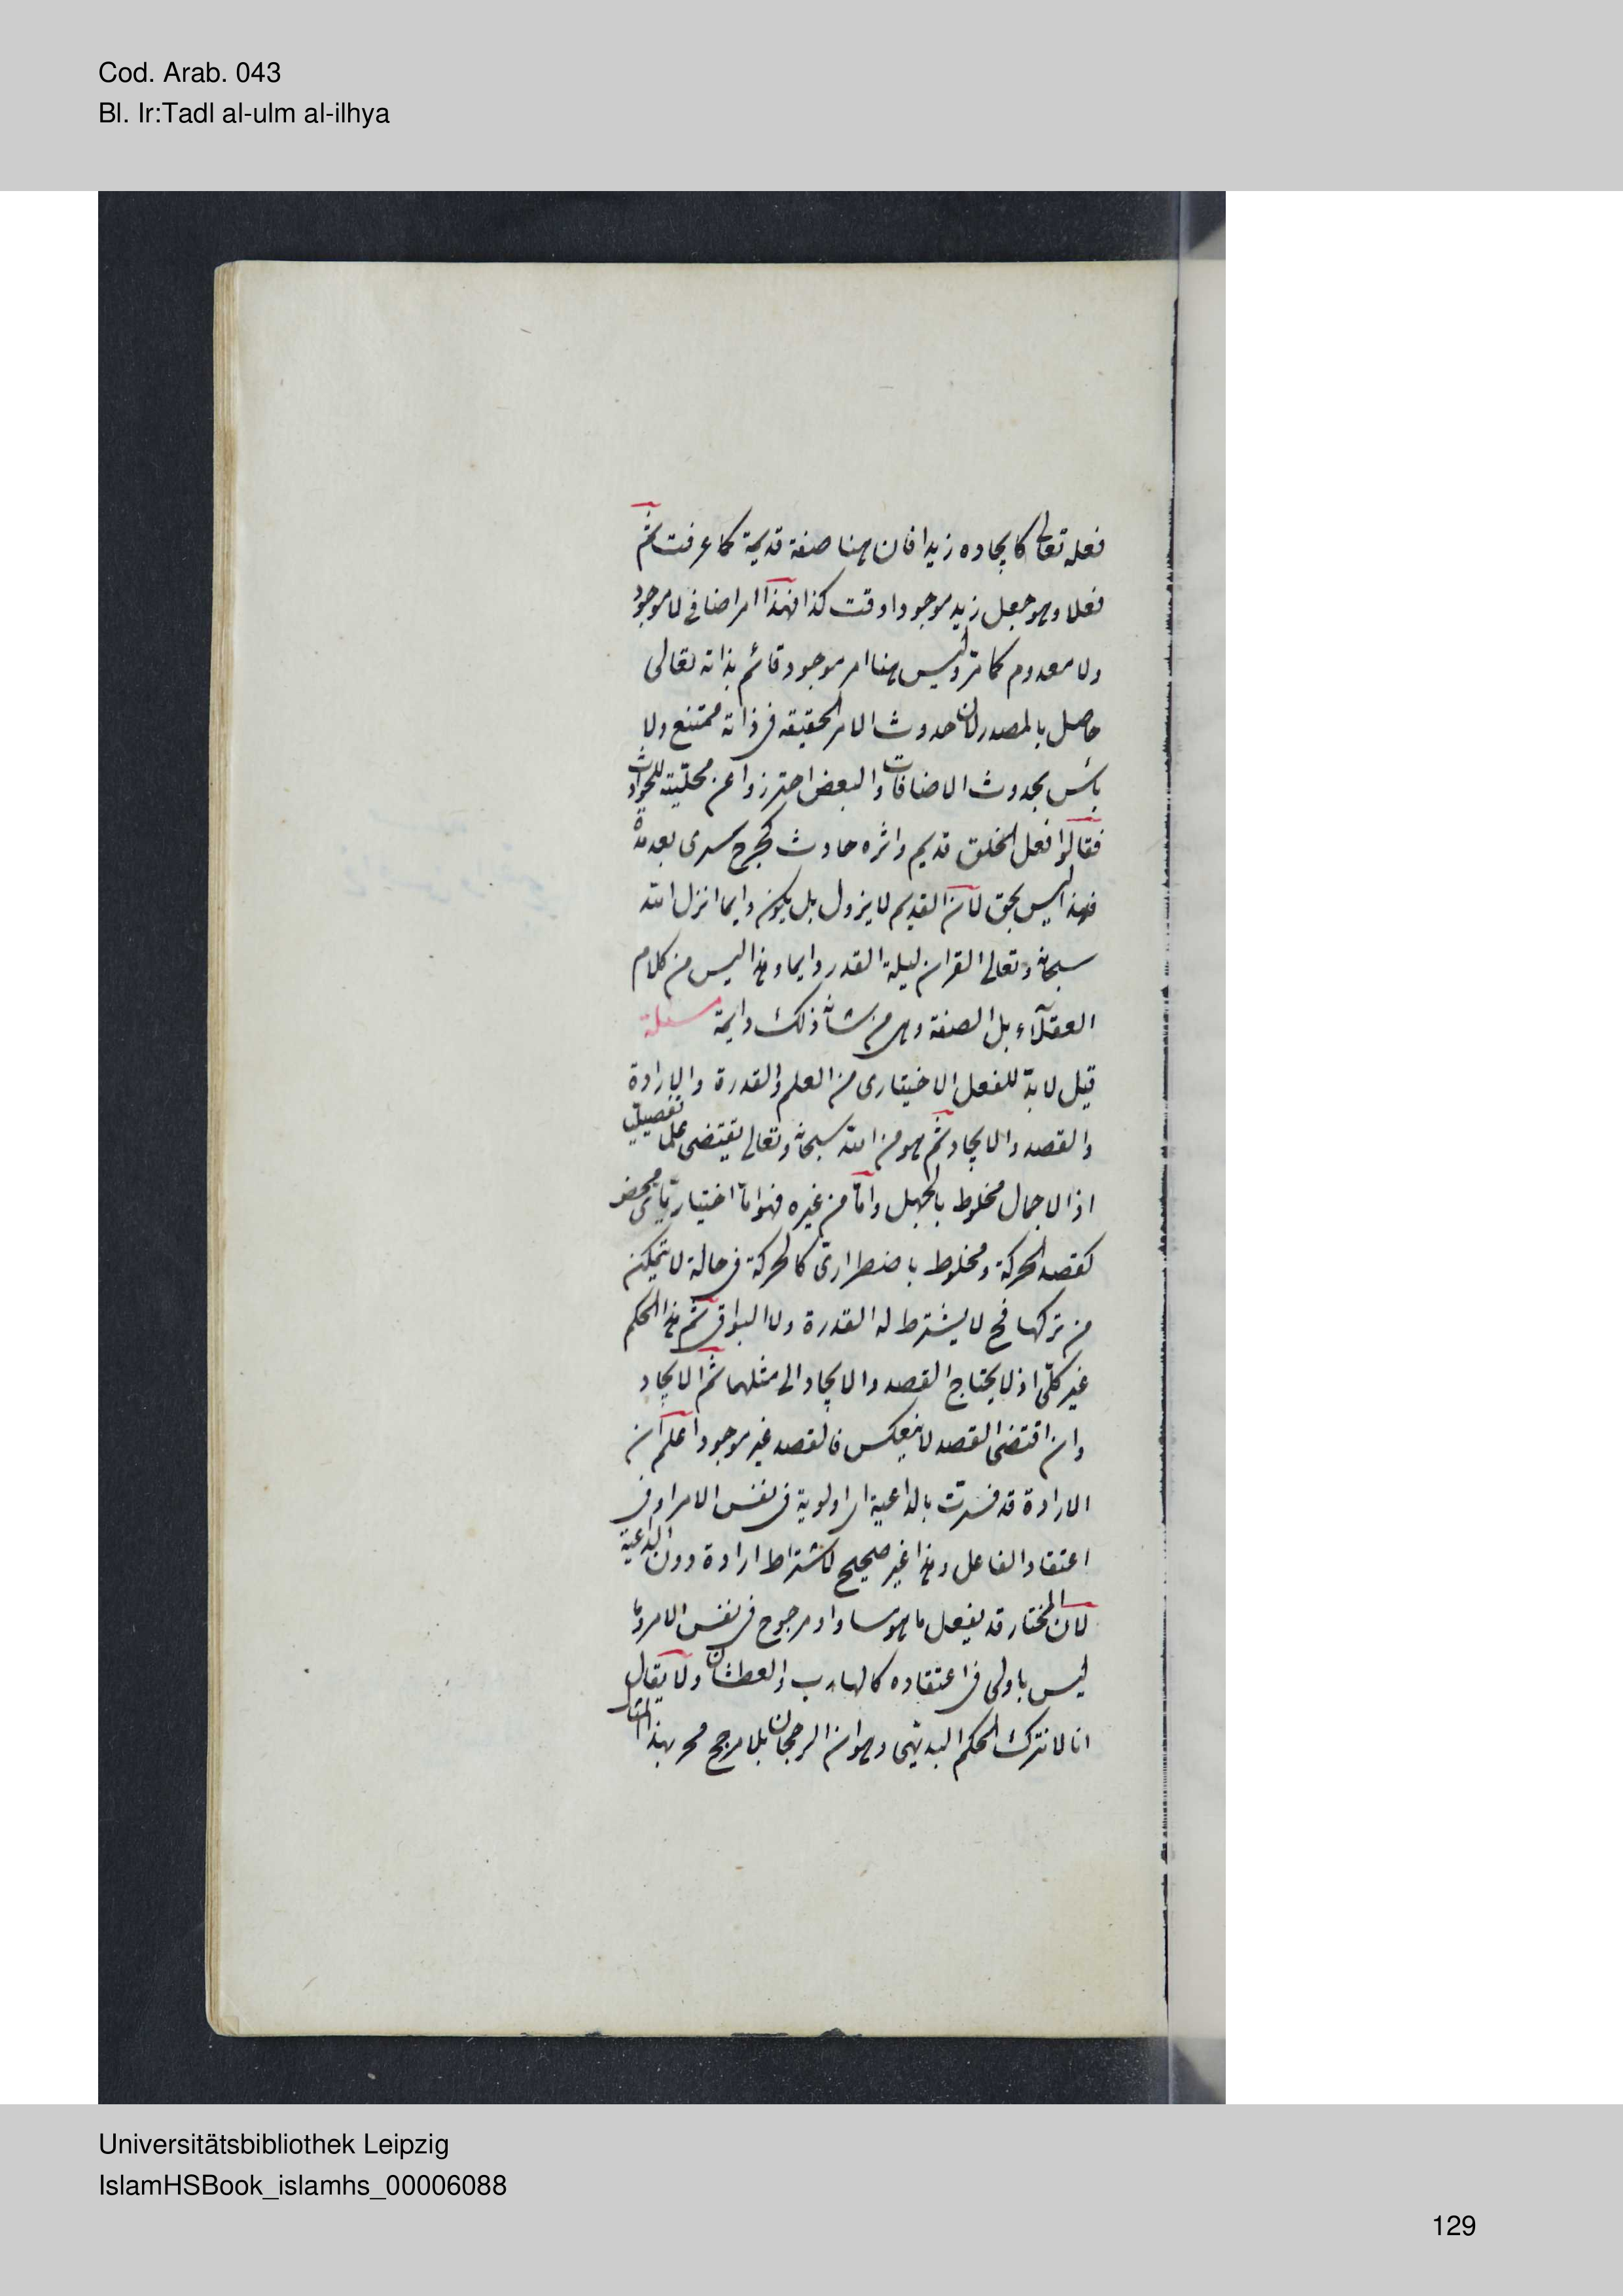 Cod. Arab. 043
Bl. Ir:Tadl al-ulm al-ilhya
فعله تعالى كايجاده زيدا فان هنا صفة قديمة كما عرفت ثم
فعلا وهو جعل زيد موجودا وقت كذا فهذا امر اضافى لا موجود
ولا معدوم كما مر وليس هنا امر موجود قائم بذاته تعالى
حاصل بالمصدر لان حدوث الامر الحقيقه فى ذاته ممتنع ولا
بأس بحدوث الاضافات والبعض احترزوا عن محليّته للحوادث
فقالوا فعل الخلق قديم واثره حادث كجرح سرى بعد مدّة
فهذا ليس بحق لان القديم لا يزول بل يكون دايما انزل الله
سبحانه وتعالى القران ليلة القدر دايما وهذا ليس من كلام
العقلاء بل الصفة وهى من شانه ذلك دايمة مسئلة
قيل لا بدّ للفعل الاختيارى من العلم والقدرة والارادة
والقصد والايجاد ثم هو من الله سبحانه وتعالى يقتضى علما تفصيليا
اذ الاجمال مخلوط بالجهل وامّا من غيره فهو امّا اختيارىّ محض
كقصد الحركة ومخلوط باضطرارىّ كالحركة فى حالة لا يتمكن
من تركها فح لا يشترط له القدرة ولا البواقى ثم هذا الحكم
غير كلّى اذ لا يحتاج القصد والايجاد الى مثلهما ثم الايجاد
وان اقتضى القصد لا ينعكس فالقصد غير موجود اعلم ان
الارادة قد فسرت بالداعية اى اولوية فى نفس الامر او فى
اعتقاد الفاعل وهذا غير صحيح لاشتراط ارادة دون الداعية
لان المختار قد يفعل ما هو مساو او مرجوح فى نفس الامر وما
ليس باولى فى اعتقاده كالهارب والعطشان ولا يقال
انا لا نترك الحكم البديهى وهو ان الرجحان بلا مرجح مح بهذا المثال
Universitätsbibliothek Leipzig
IslamHSBook_islamhs_00006088
129